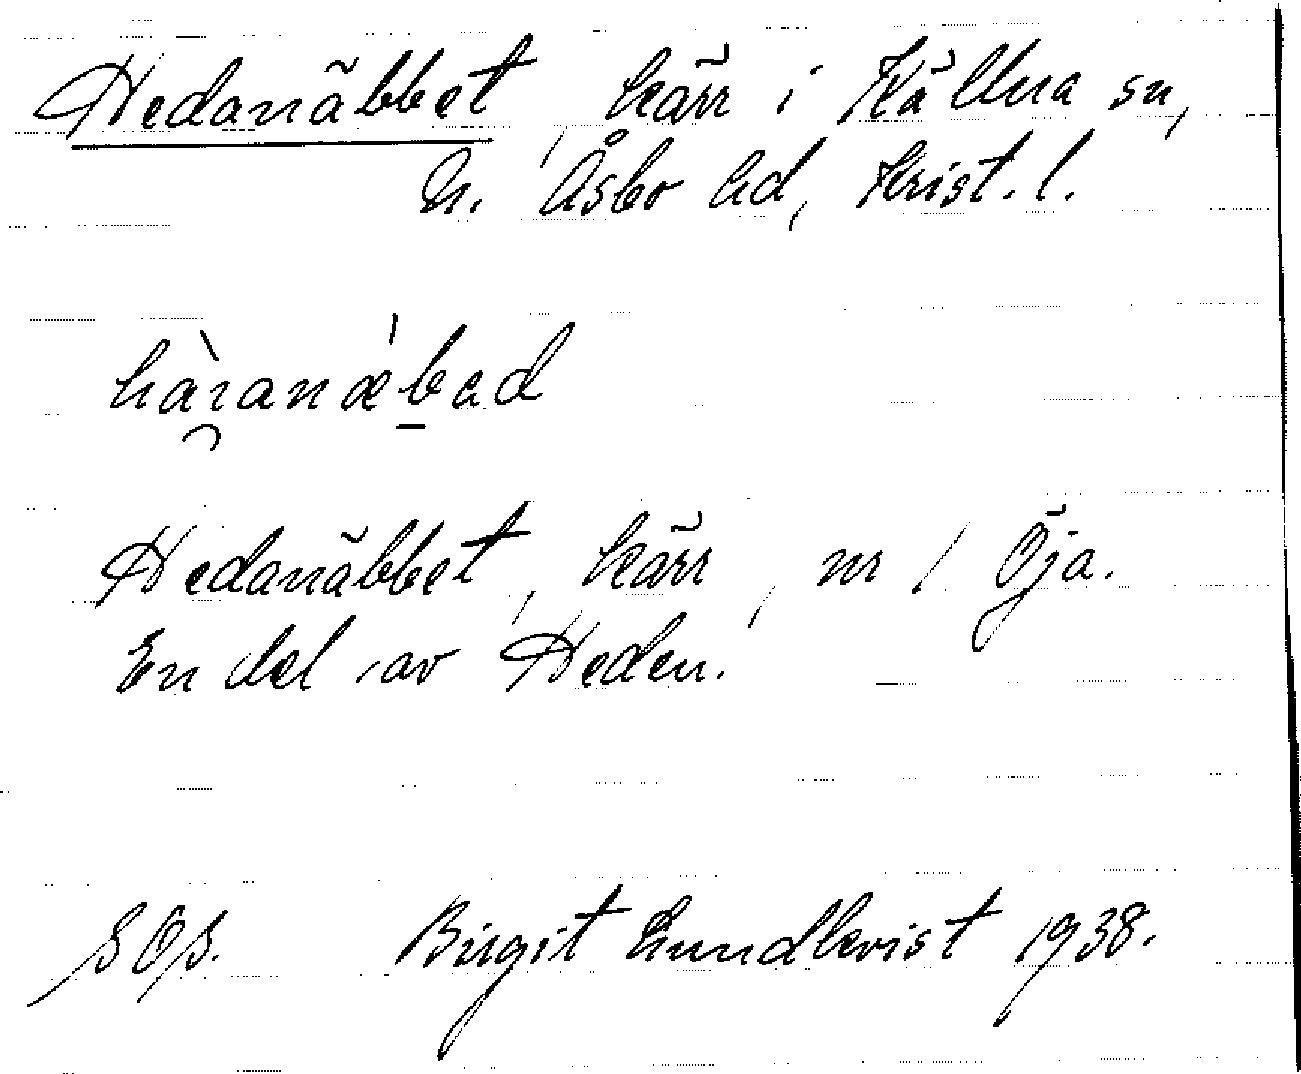 Hedanäbbet, kärr i Källna sn,
N. Åsbo hd, Krist. l.
hàranæ̍bad
Hedanäbbet, kärr, nr 1 Öja.
En del av Heden.
SOS. Birgit Lundkvist 1938.